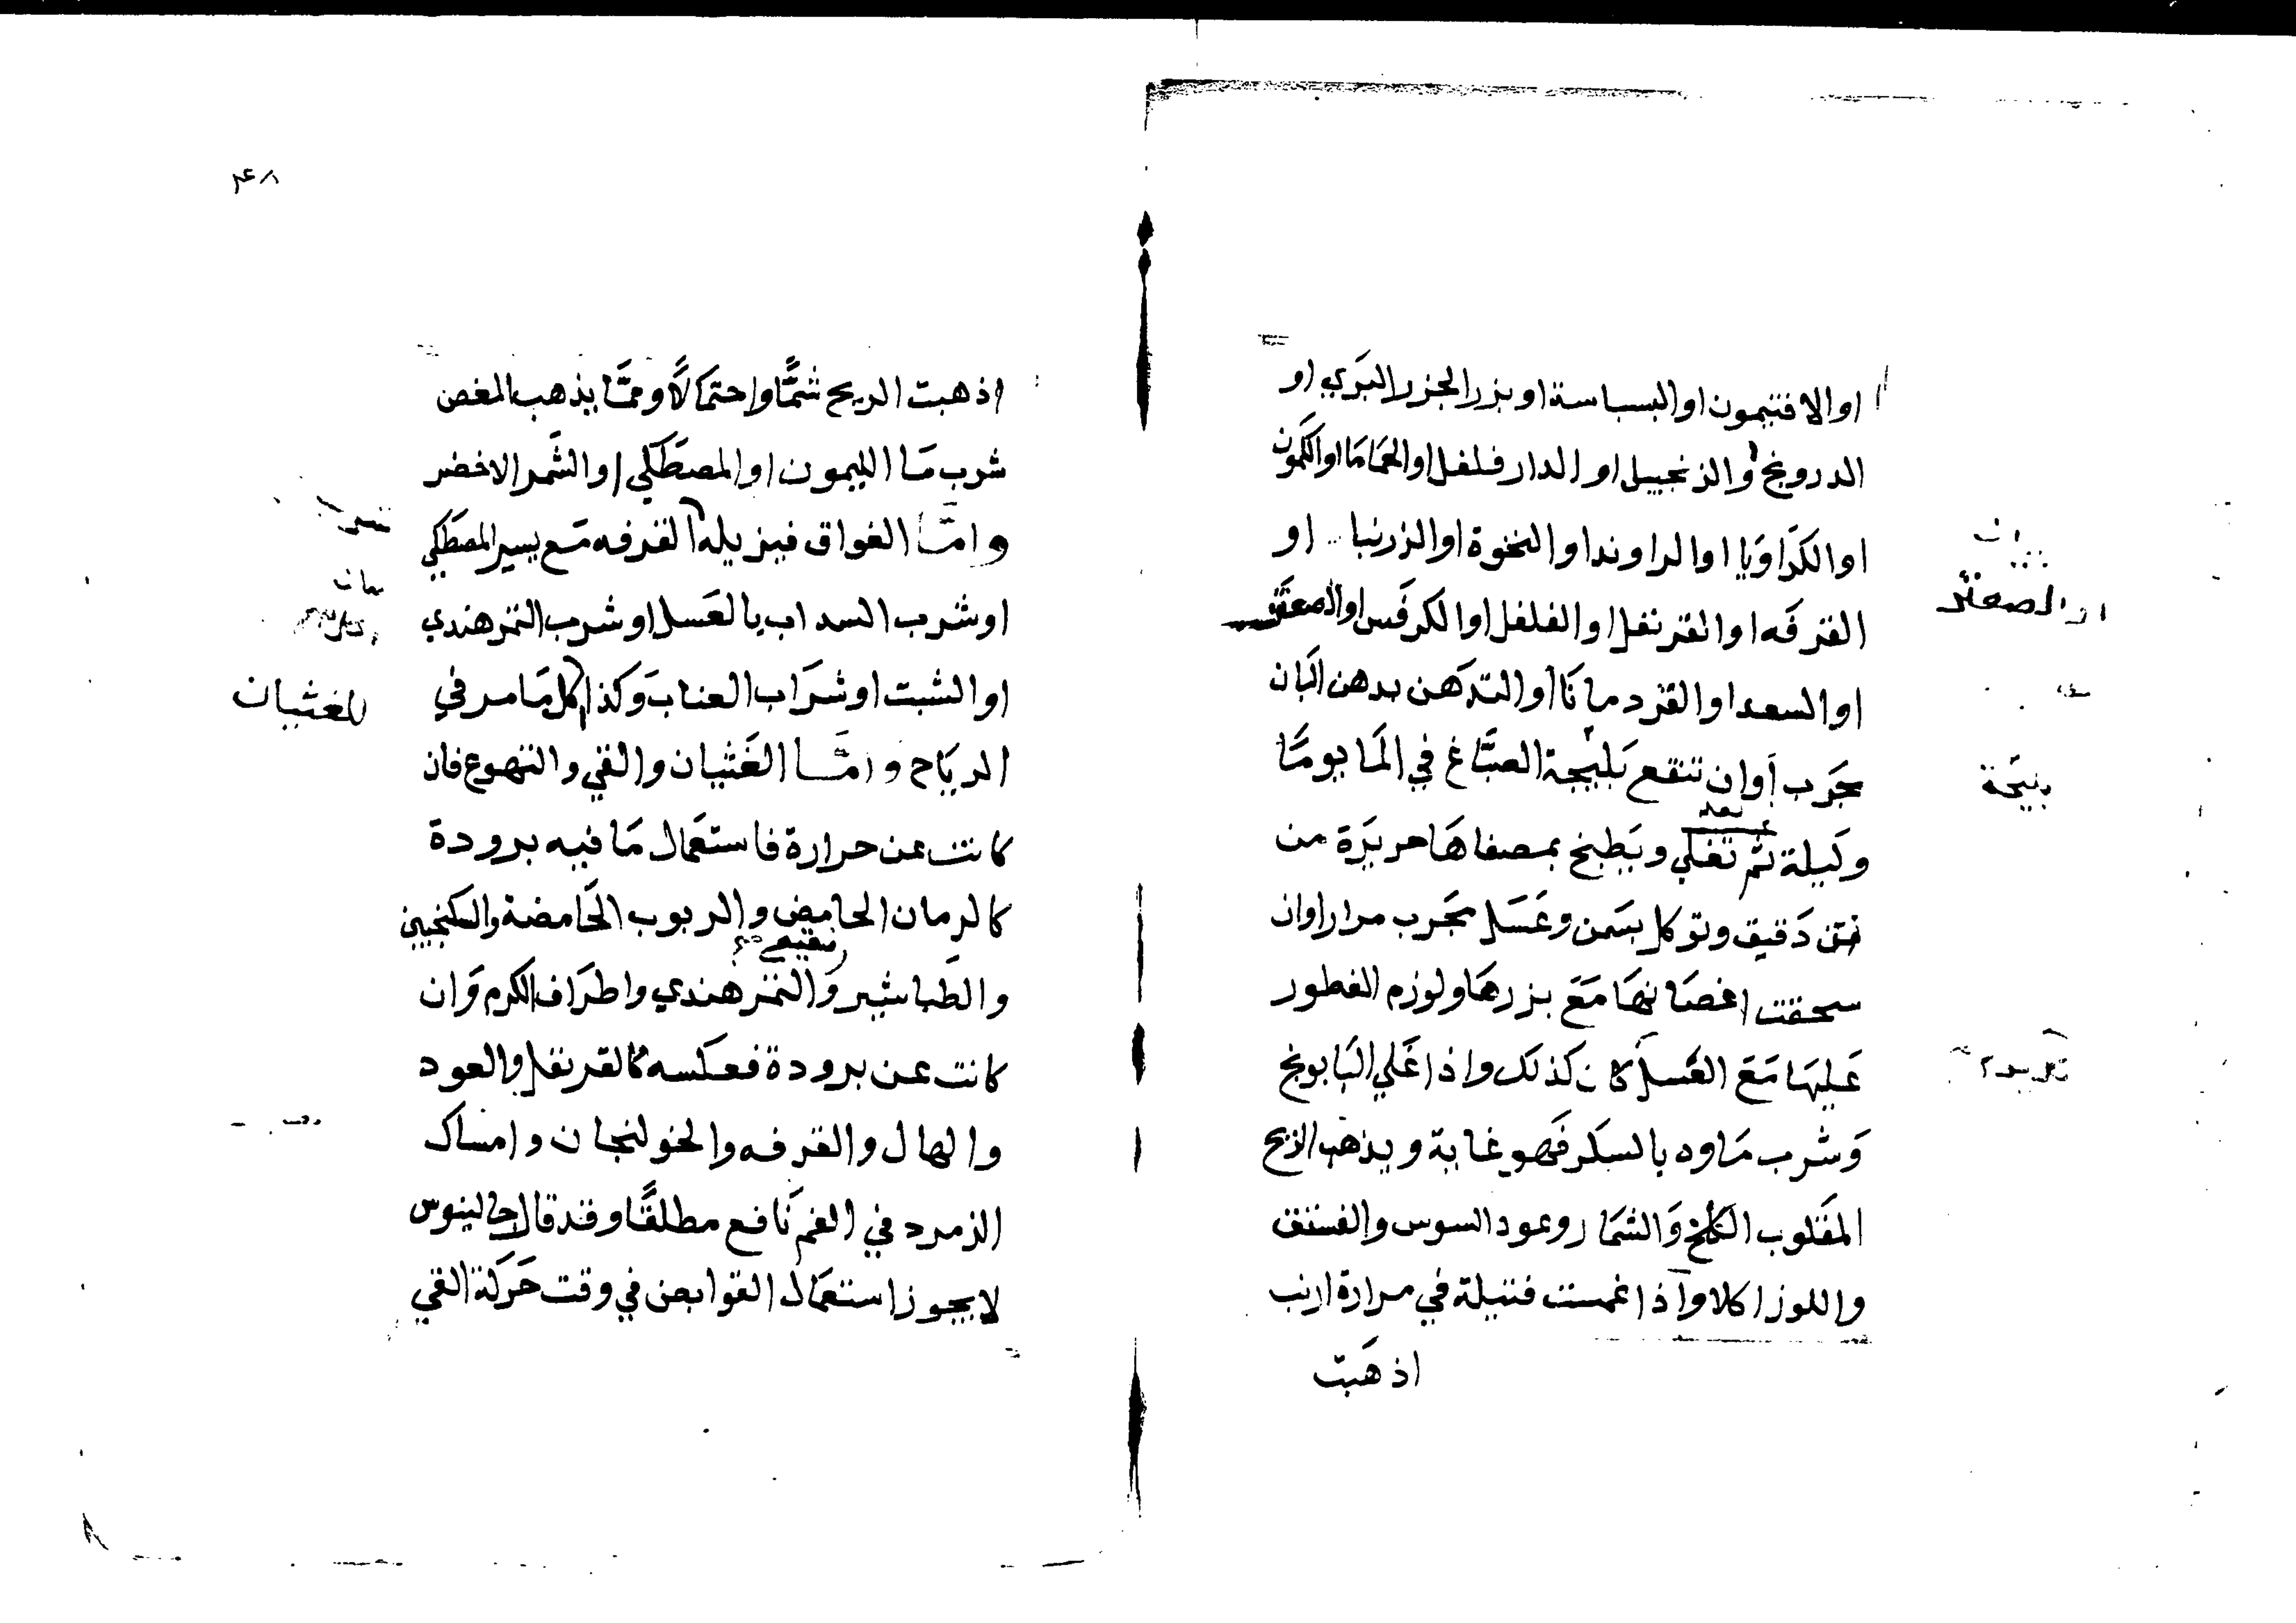 او الافتيمون او البسباسة او بزر الجزر البَرّي او
الدرونج او الزنجبيل او الدارفلفل او الحمَامَا او الكمّون
او الكرَاوَيا او الراوند او النخوة او الزرنبا او
القرفَه او القرنفل او الفلفل او الكرفَس او الصعتَر
او الصعتر
او السعد او القردمانَا او التدَهن بدهن البَان
مجَرب او ان تنقع بَليجة الصبَّاغ في المَا يومًا
بنيجَة
وليلة ثم تغلي ويَطبخ بمصفاهَا حريَرة من
بعد
دَقيق وتوكل بسَمن وعَسَل مجَرب مرارا وان
سحقت اغصَانهَا مَعَ بزرهَا ولوزم الفطور
عَليهَا مَعَ العَسل كان كذلك واذا غَلي البَابونج
وَشرب مَاوه بالسكر فَهو غاية ويذهب الريح
المقَلوب الكلخ وَالشمَار وعود السوس والفستق
واللوز اكلا واذا غمست فتيلة في مرارة ارنب
اذهَبت
٤٨
اذهبت الريح شمًّا واحتمَالًا وممَّا يذهب المغص
شرب مَا الليمون او المصطَكي او الشمَر الاخضر
وامَّا الفواق فيزيله القرفه مَع يسير المصطَكي
او شرب السداب بالعَسل او شرب التمر هندي
او الشبت او شرَاب العناب وَكذا كل مَا مر في
للغثيان
الريَاح وامَّا الغَثيان والقي والتهوع فان
كانت عن حرارة فاستعمَال مَا فيه برودة
كالرمان الحامض والربوب الحَامضة والسكنجبين
نقيع
والطَباشير وَالتمر هندي واطرَاف الكرم وَان
كانت عن برودة فعكسه كالقرنفل والعود
والهال والقرفه والخولنجان وامساك
الزمرد في الفم نَافع مطلقًا وقد قال جالينوس
لا يجوز استعمَال القوابض في وقت حَركَة القي